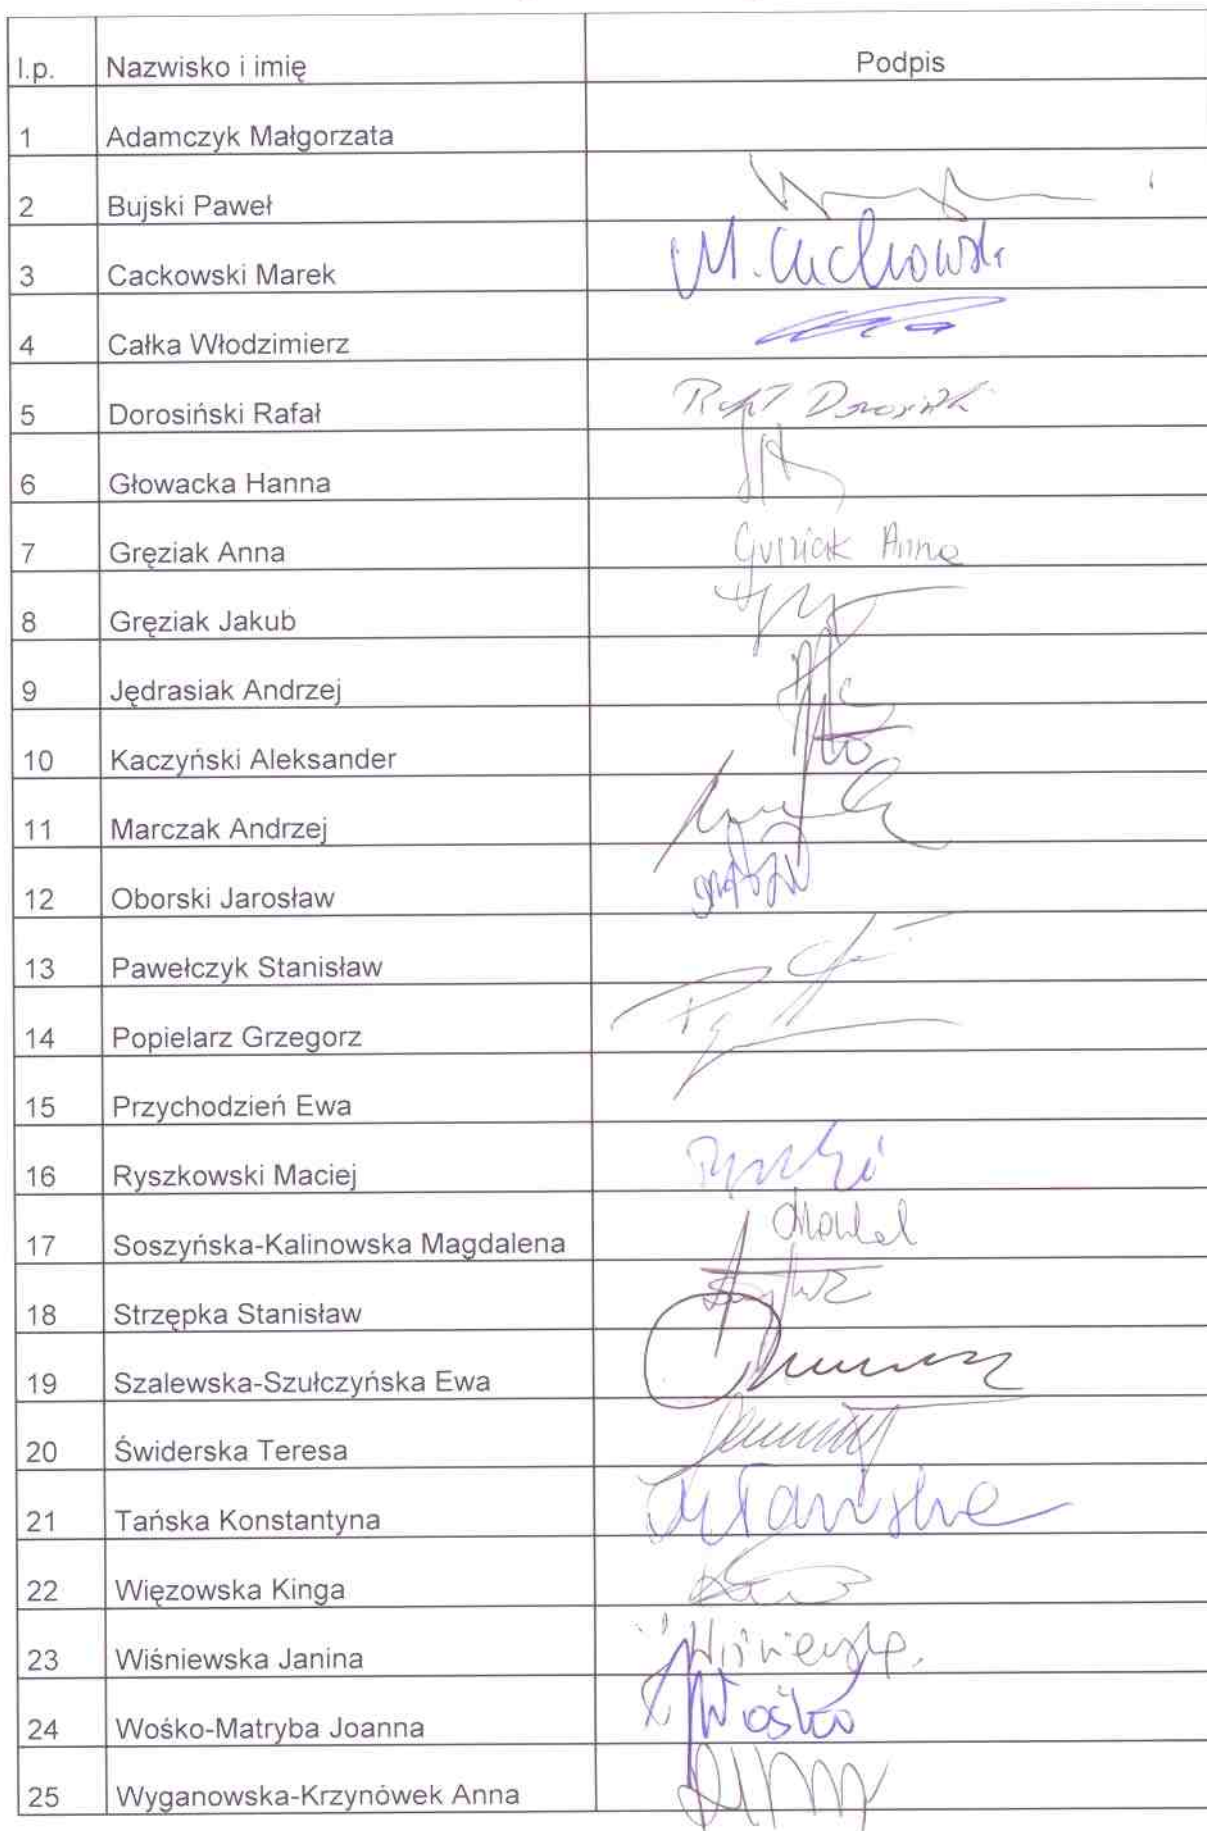 l.p. Nazwisko i imię Podpis
1 Adamczyk Małgorzata
2 Bujski Paweł
3 Cackowski Marek M. Cackowski
4 Całka Włodzimierz
5 Dorosiński Rafał Rafał Dorosiński
6 Głowacka Hanna
7 Gręziak Anna Gręziak Anna
8 Gręziak Jakub
9 Jędrasiak Andrzej
10 Kaczyński Aleksander
11 Marczak Andrzej
12 Oborski Jarosław
13 Pawełczyk Stanisław
14 Popielarz Grzegorz
15 Przychodzień Ewa
16 Ryszkowski Maciej
17 Soszyńska-Kalinowska Magdalena
18 Strzępka Stanisław
19 Szalewska-Szułczyńska Ewa
20 Świderska Teresa
21 Tańska Konstantyna Tańska
22 Więzowska Kinga
23 Wiśniewska Janina Wiśniewska
24 Wośko-Matryba Joanna Wośko
25 Wyganowska-Krzynówek Anna